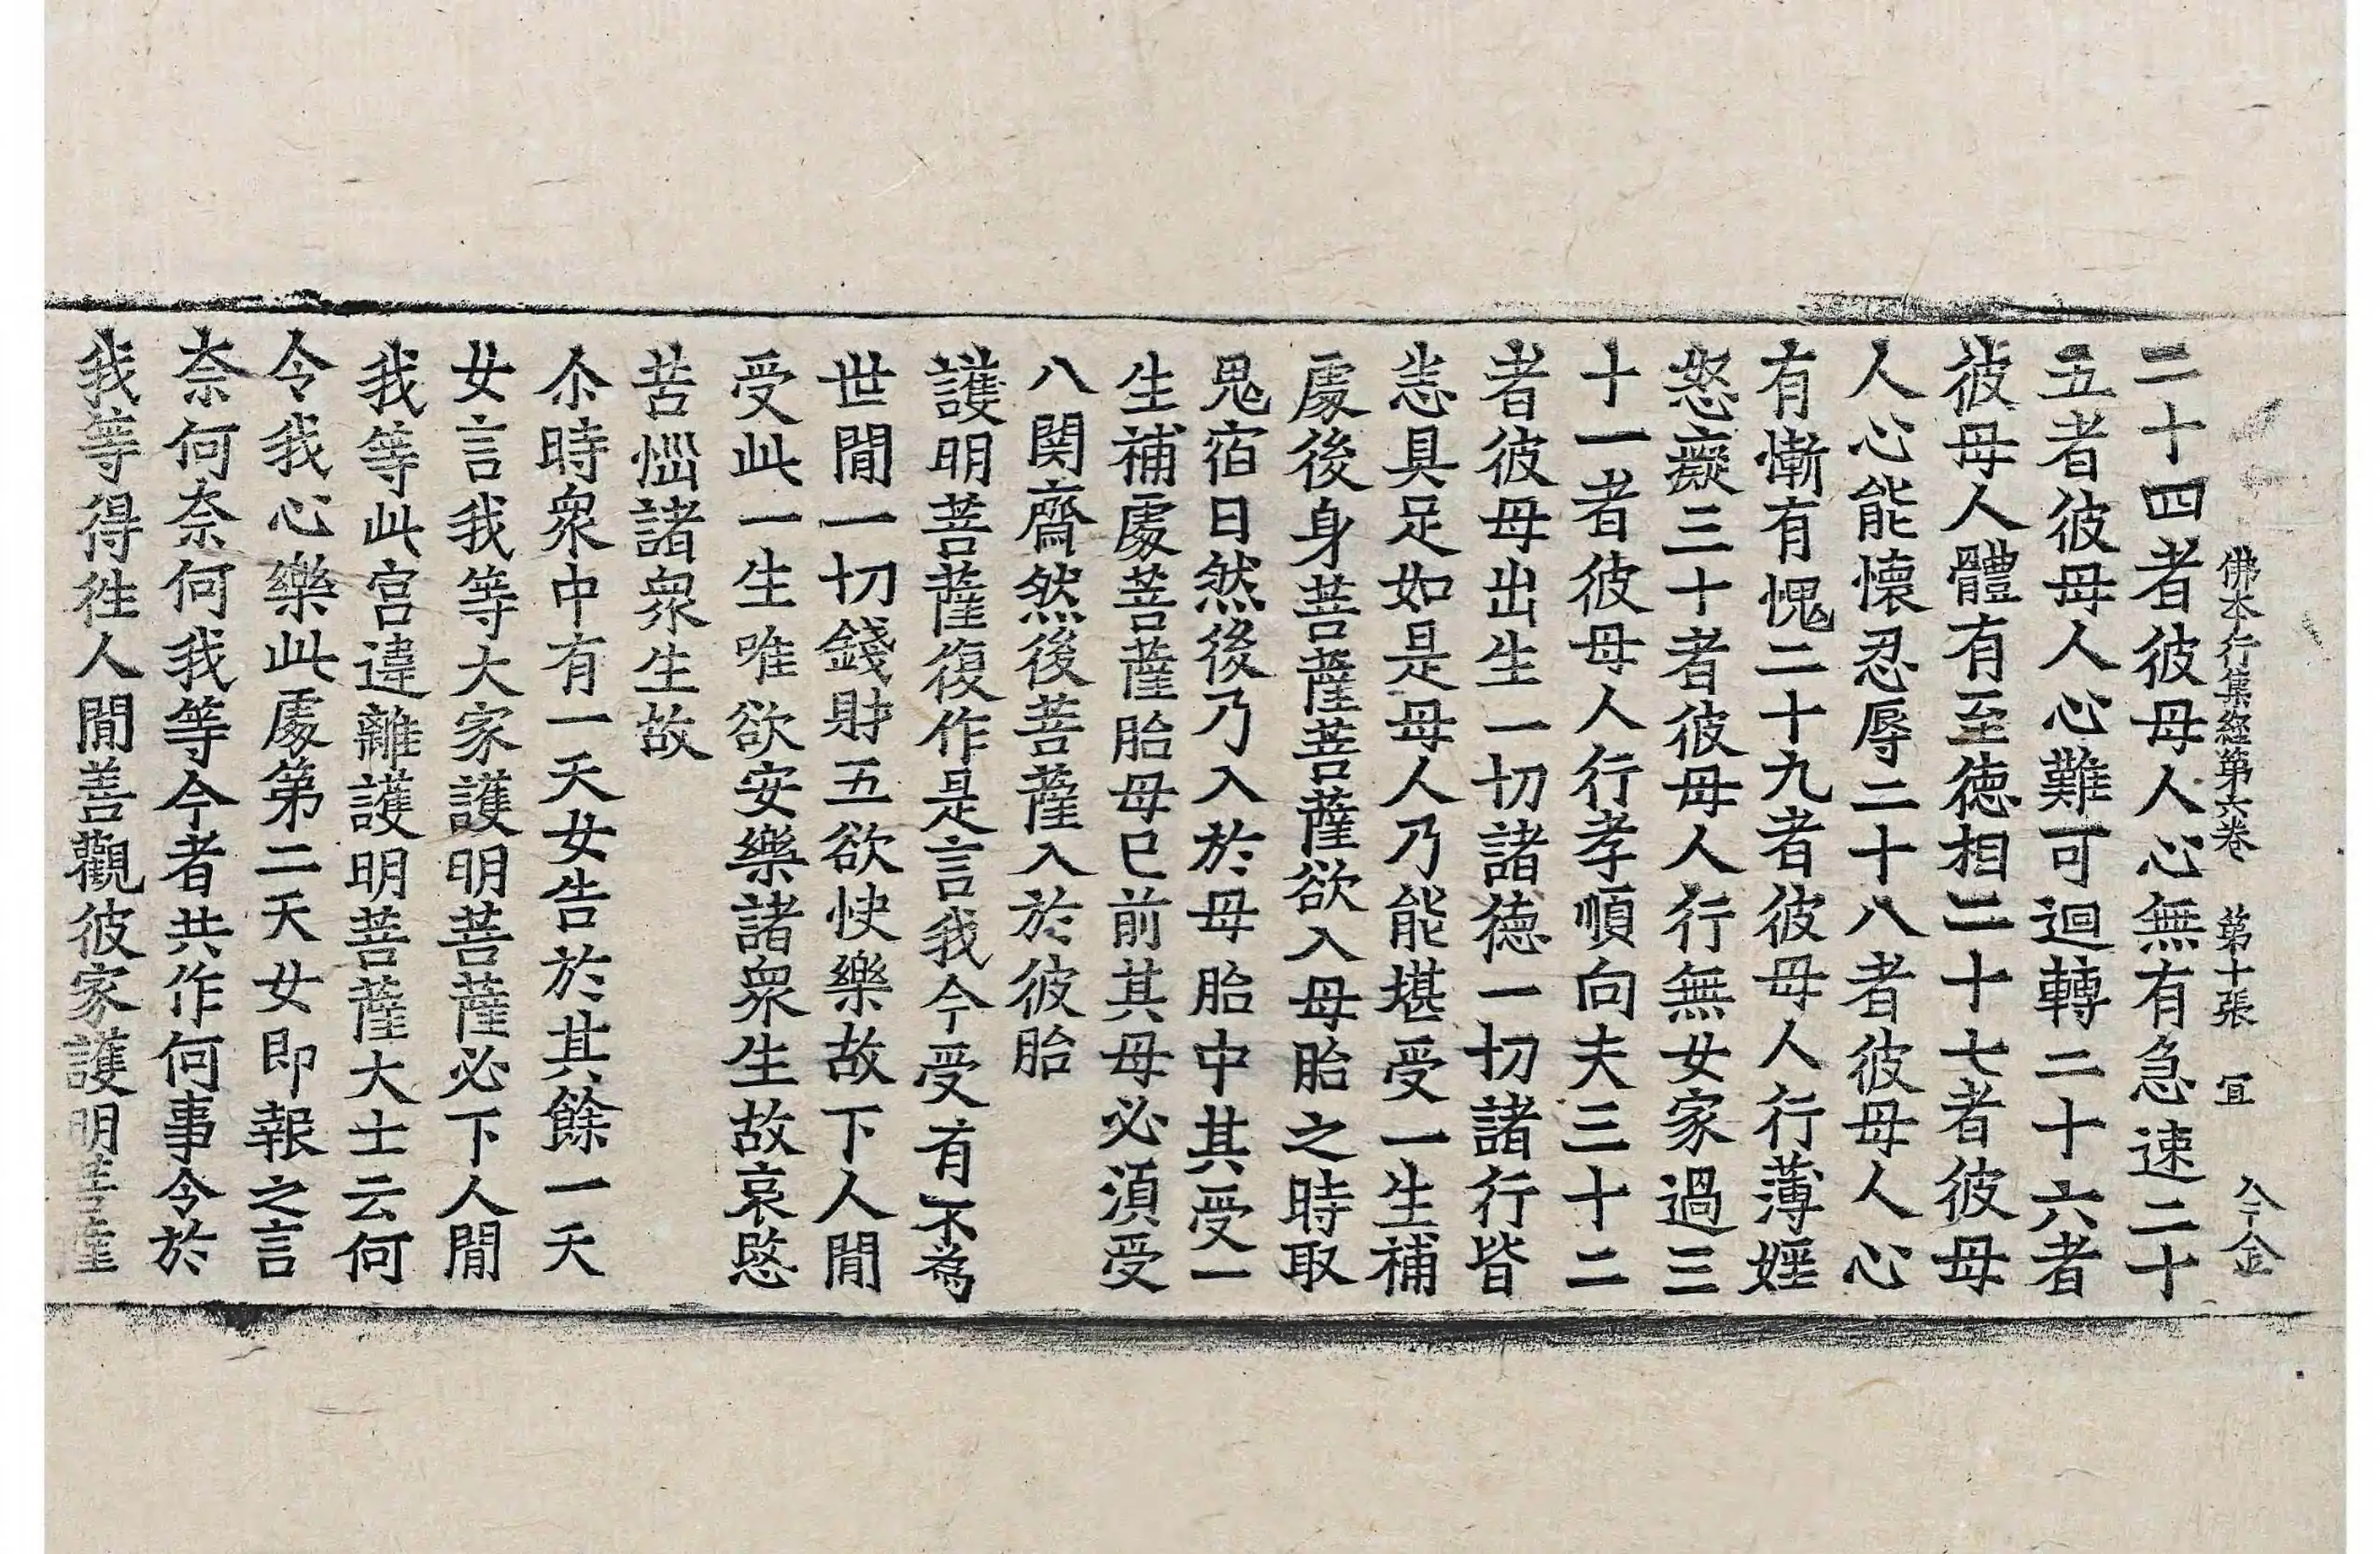 佛本行集經第六卷　第十張　宜
二十四者彼母人心無有急速二十
五者彼母人心難可迴轉二十六者
彼母人體有至德相二十七者彼母
人心能懷忍辱二十八者彼母人心
有慚有愧二十九者彼母人行薄婬
怒癡三十者彼母人行無女家過三
十一者彼母人行孝順向夫三十二
者彼母出生一切諸德一切諸行皆
悉具足如是母人乃能堪受一生補
處後身菩薩菩薩欲入母胎之時取
鬼宿日然後乃入於母胎中其受一
生補處菩薩胎母已前其母必須受
八関齋然後菩薩入於彼胎
護明菩薩復作是言我今受有不為
世間一切錢財五欲快樂故下人間
受此一生唯欲安樂諸衆生故哀愍
苦惱諸衆生故
尒時衆中有一天女告於其餘一天
女言我等大家護明菩薩必下人間
我等此宮違離護明菩薩大士云何
令我心樂此處第二天女即報之言
奈何奈何我等今者共作何事令於
我等得往人間善觀彼家護明菩薩